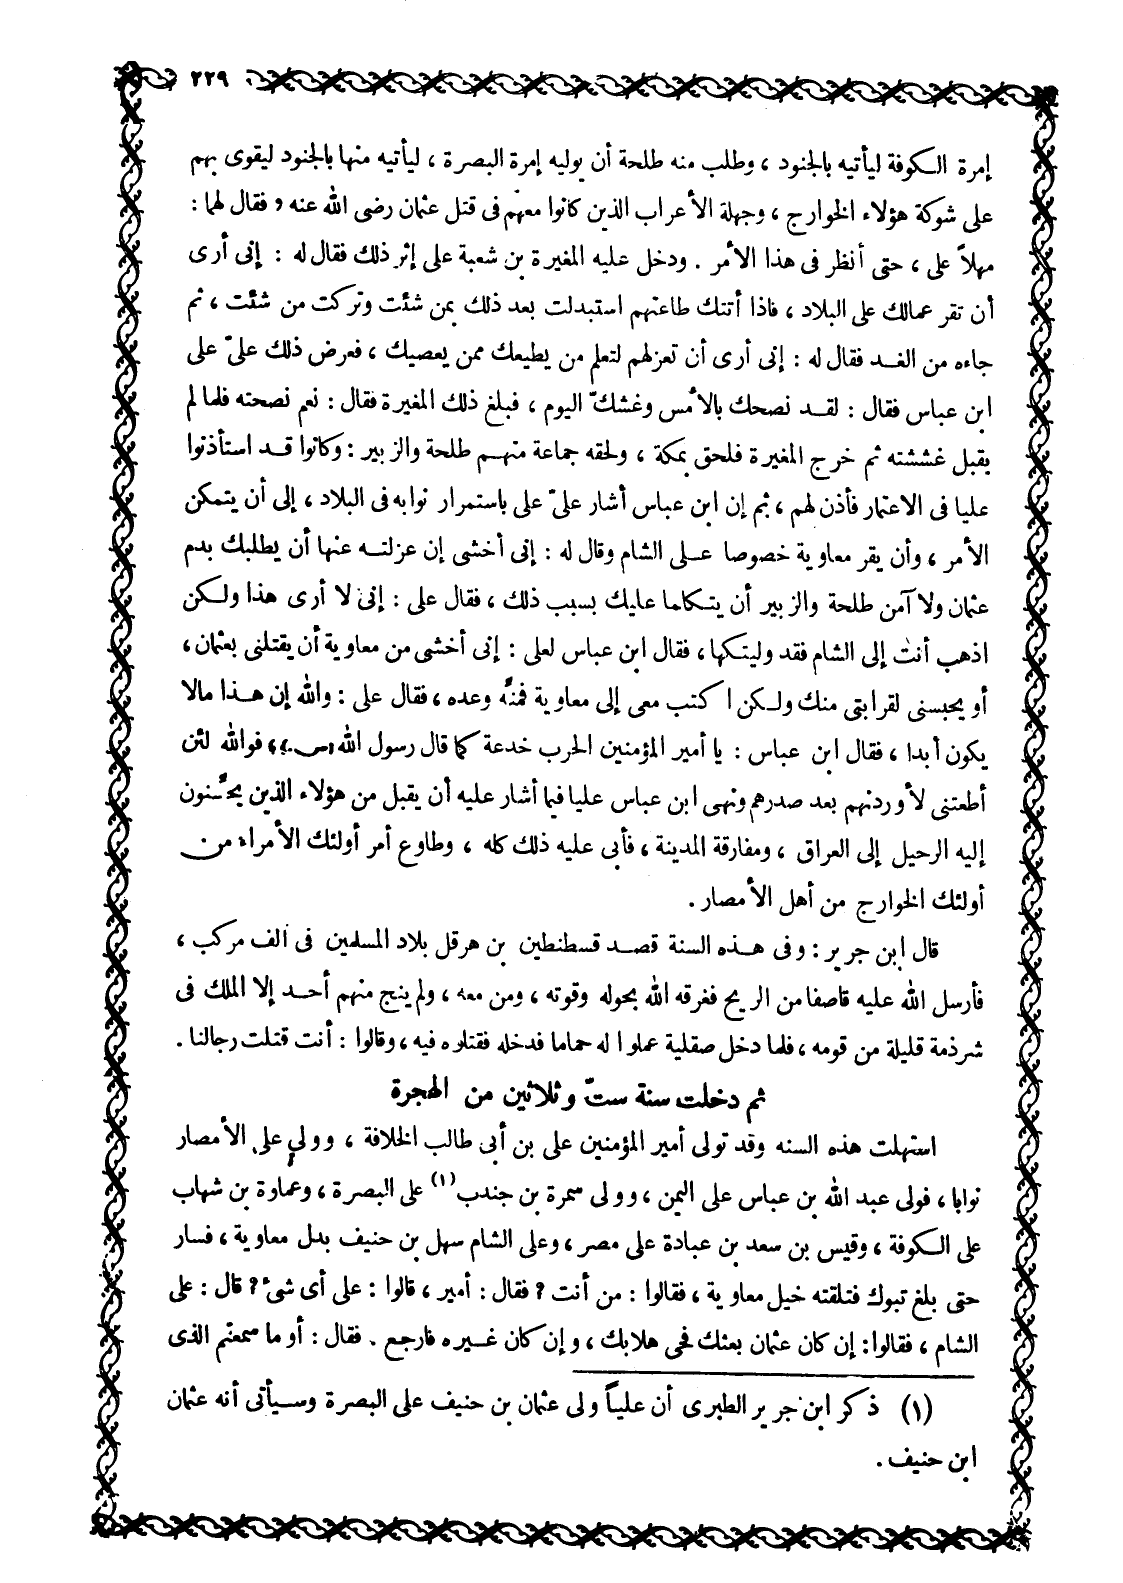 ٢٢٩
إمرة الكوفة ليأتيه بالجنود ، وطلب منه طلحة أن يوليه إمرة البصرة ، ليأتيه منها بالجنود ليقوى بهم
على شوكة هؤلاء الخوارج ، وجهلة الأعراب الذين كانوا معهم فى قتل عثمان رضى الله عنه و فقال لهما :
مهلاً على ، حتى أنظر فى هذا الأمر . ودخل عليه المغيرة بن شعبة على إثر ذلك فقال له : إنى أرى
أن تقر عمالك على البلاد ، فاذا أتتك طاعتهم استبدلت بعد ذلك بمن شئت وتركت من شئت ، ثم
جاءه من الغد فقال له : إنى أرى أن تعزلهم لتعلم من يطيعك ممن يعصيك ، فعرض ذلك علىّ على
ابن عباس فقال : لقد نصحك بالأمس وغشكّ اليوم ، فبلغ ذلك المغيرة فقال : نعم نصحته فلما لم
يقبل غششته ثم خرج المغيرة فلحق بمكة ، ولحقه جماعة منهم طلحة والزبير : وكانوا قد استأذنوا
عليا فى الاعتمار فأذن لهم ، ثم إن ابن عباس أشار علىّ على باستمرار نوابه فى البلاد ، إلى أن يتمكن
الأمر ، وأن يقر معاوية خصوصا على الشام وقال له : إنى أخشى إن عزلته عنها أن يطلبك بدم
عثمان ولا آمن طلحة والزبير أن يتكلما عليك بسبب ذلك ، فقال على : إنى لا أرى هذا ولكن
اذهب أنت إلى الشام فقد وليتكها ، فقال ابن عباس لعلى : إنى أخشى من معاوية أن يقتلنى بعثمان ،
أو يحبسنى لقرابتى منك ولكن اكتب معى إلى معاوية فمنِّه وعده ، فقال على : والله إن هذا مالا
يكون أبدا ، فقال ابن عباس : يا أمير المؤمنين الحرب خدعة كما قال رسول الله فوالله لئن
أطعتنى لأوردنهم بعد صدرهم ونهى ابن عباس عليا فيما أشار عليه أن يقبل من هؤلاء الذين يحسّنون
إليه الرحيل إلى العراق ، ومفارقة المدينة ، فأبى عليه ذلك كله ، وطاوع أمر أولئك الأمراء من
أولئك الخوارج من أهل الأمصار .
قال ابن جرير : وفى هذه السنة قصد قسطنطين بن هرقل بلاد المسلمين فى ألف مركب ،
فأرسل الله عليه قاصفا من الريح فغرقه الله بحوله وقوته ، ومن معه ، ولم ينج منهم أحد إلا الملك فى
شرذمة قليلة من قومه ، فلما دخل صقلية عملوا له حماما فدخله فقتلوه فيه ، وقالوا : أنت قتلت رجالنا .
ثم دخلت سنة ستّ وثلاثين من الهجرة
استهلت هذه السنه وقد تولى أمير المؤمنين على بن أبى طالب الخلافة ، وولى على الأمصار
نوابا ، فولى عبد الله بن عباس على اليمن ، وولى سمرة بن جندب(١) على البصرة ، وعمارة بن شهاب
على الكوفة ، وقيس بن سعد بن عبادة على مصر ، وعلى الشام سهل بن حنيف بدل معاوية ، فسار
حتى بلغ تبوك فتلقته خيل معاوية ، فقالوا : من أنت ؟ فقال : أمير ، قالوا : على أى شىء ؟ قال : على
الشام ، فقالوا : إن كان عثمان بعثك فحى هلابك ، وإن كان غيره فارجع . فقال : أو ما سمعتم الذى
(١) ذكر ابن جرير الطبرى أن علياً ولى عثمان بن حنيف على البصرة وسيأتى أنه عثمان
ابن حنيف .